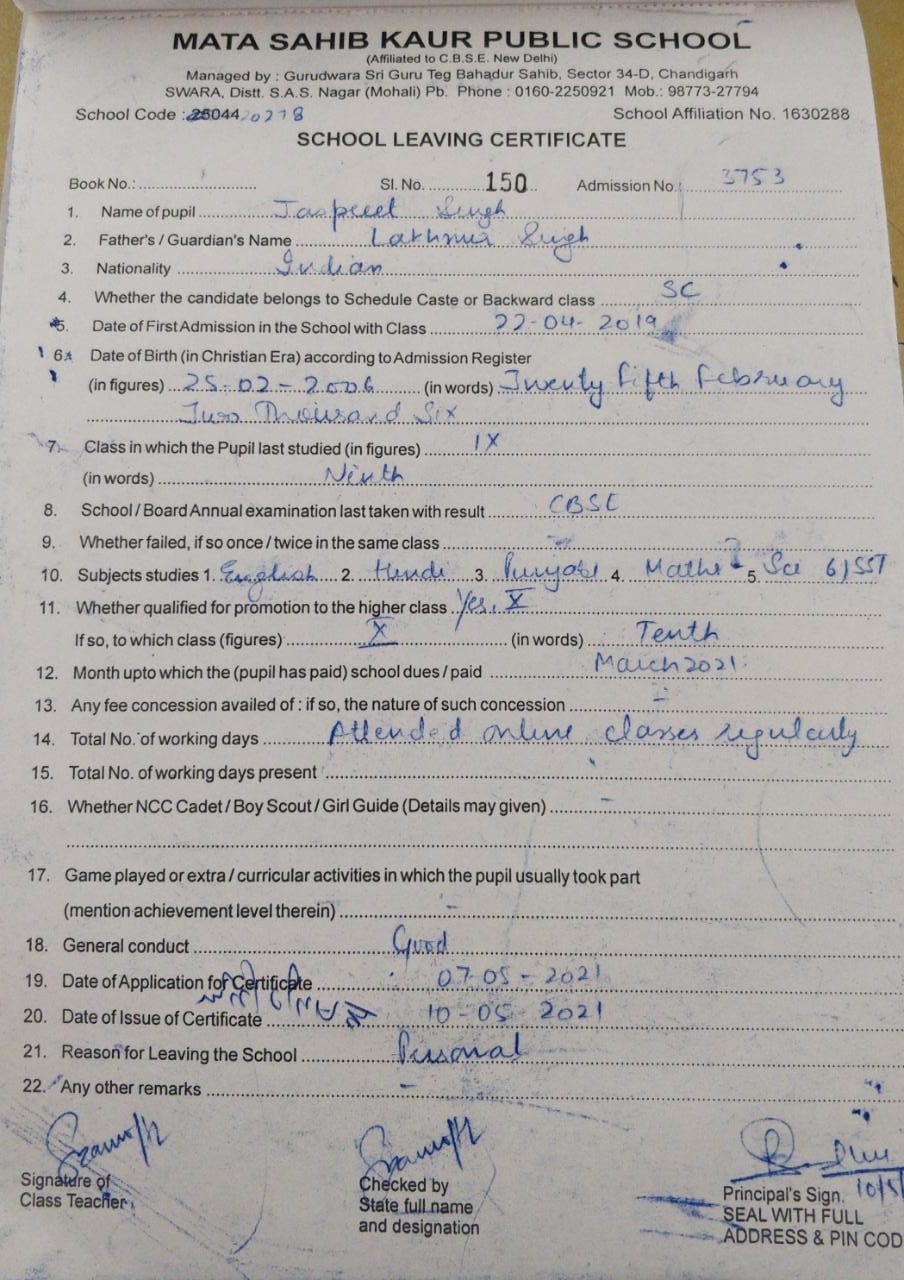 MATA SAHIB KAUR PUBLIC SCHOOL
(Affiliated to C.B.S.E. New Delhi)
Managed by : Gurudwara Sri Guru Teg Bahadur Sahib, Sector 34-D, Chandigarh
SWARA, Distt. S.A.S. Nagar (Mohali) Pb. Phone : 0160-2250921 Mob.: 98773-27794
School Code : 25044 20278 School Affiliation No. 1630288
SCHOOL LEAVING CERTIFICATE
Book No.: Sl. No. 150 Admission No.: 3753
1. Name of pupil Jaspreet Singh
2. Father's / Guardian's Name Lakhmir Singh
3. Nationality Indian
4. Whether the candidate belongs to Schedule Caste or Backward class SC
5. Date of First Admission in the School with Class 22-04-2019
6. Date of Birth (in Christian Era) according to Admission Register
(in figures) 25-02-2006 (in words) Twenty Fifth February
Two Thousand Six
7. Class in which the Pupil last studied (in figures) IX
(in words) Ninth
8. School / Board Annual examination last taken with result CBSE
9. Whether failed, if so once / twice in the same class
10. Subjects studies 1. English 2. Hindi 3. Punjabi 4. Maths 5. Sci 6) SST
11. Whether qualified for promotion to the higher class Yes, X
If so, to which class (figures) X (in words) Tenth
12. Month upto which the (pupil has paid) school dues / paid March 2021
13. Any fee concession availed of : if so, the nature of such concession -
14. Total No. of working days Attended online classes regularly
15. Total No. of working days present
16. Whether NCC Cadet / Boy Scout / Girl Guide (Details may given) -
17. Game played or extra / curricular activities in which the pupil usually took part
(mention achievement level therein) -
18. General conduct Good
19. Date of Application for Certificate 07-05-2021
20. Date of Issue of Certificate 10-05-2021
21. Reason for Leaving the School Personal
22. Any other remarks -
Signature of
Class Teacher
Checked by
State full name
and designation
10/5
Principal's Sign.
SEAL WITH FULL
ADDRESS & PIN COD